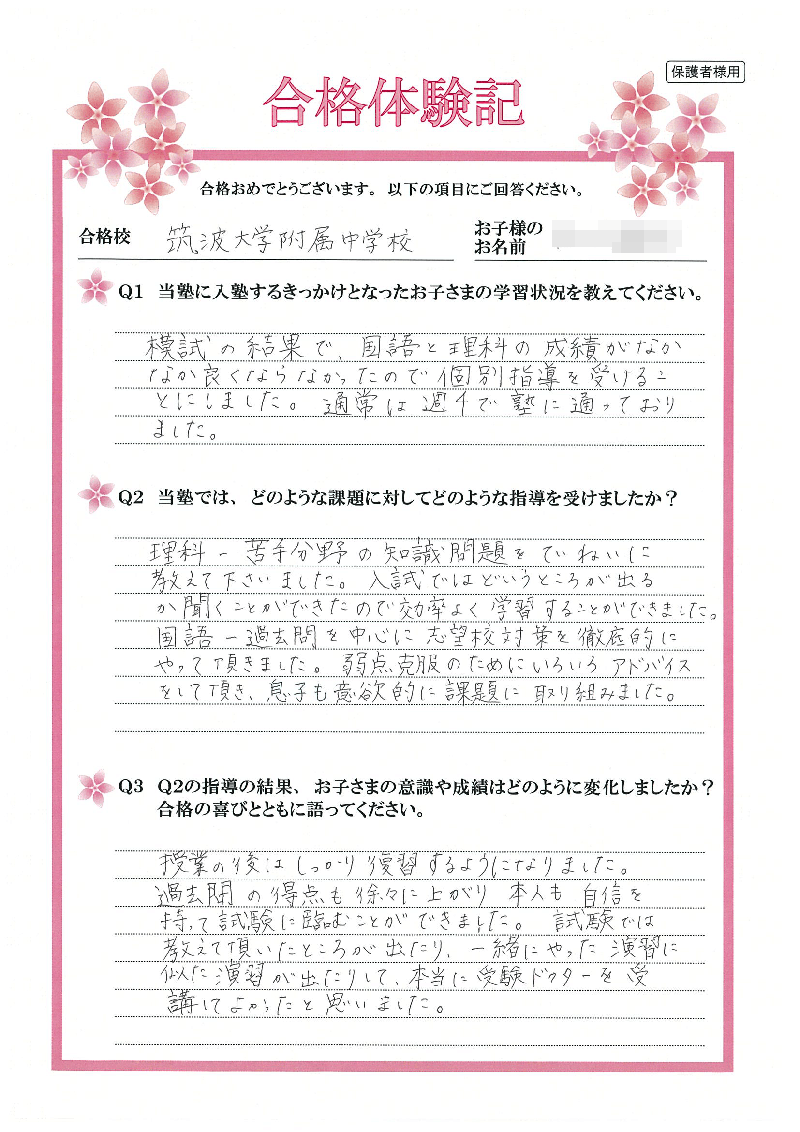 保護者様用
合格体験記
合格おめでとうございます。以下の項目にご回答ください。
合格校 筑波大学附属中学校 お子様のお名前
Q1 当塾に入塾するきっかけとなったお子さまの学習状況を教えてください。
模試の結果で、国語と理科の成績がなか
なか良くならなかったので個別指導を受けるこ
とにしました。通常は週4で塾に通っており
ました。
Q2 当塾では、どのような課題に対してどのような指導を受けましたか?
理科-苦手分野の知識問題をていねいに
教えて下さいました。入試ではどいうところが出る
か聞くことができたので効率よく学習することができました。
国語-過去問を中心に志望校対策を徹底的に
やって頂きました。弱点克服のためにいろいろアドバイス
をして頂き、息子も意欲的に課題に取り組みました。
Q3 Q2の指導の結果、お子さまの意識や成績はどのように変化しましたか?
合格の喜びとともに語ってください。
授業の後はしっかり復習するようになりました。
過去問の得点も徐々に上がり本人も自信を
持って試験に臨むことができました。試験では
教えて頂いたところが出たり、一緒にやった演習に
似た演習が出たりして、本当に受験ドクターを受
講してよかったと思いました。